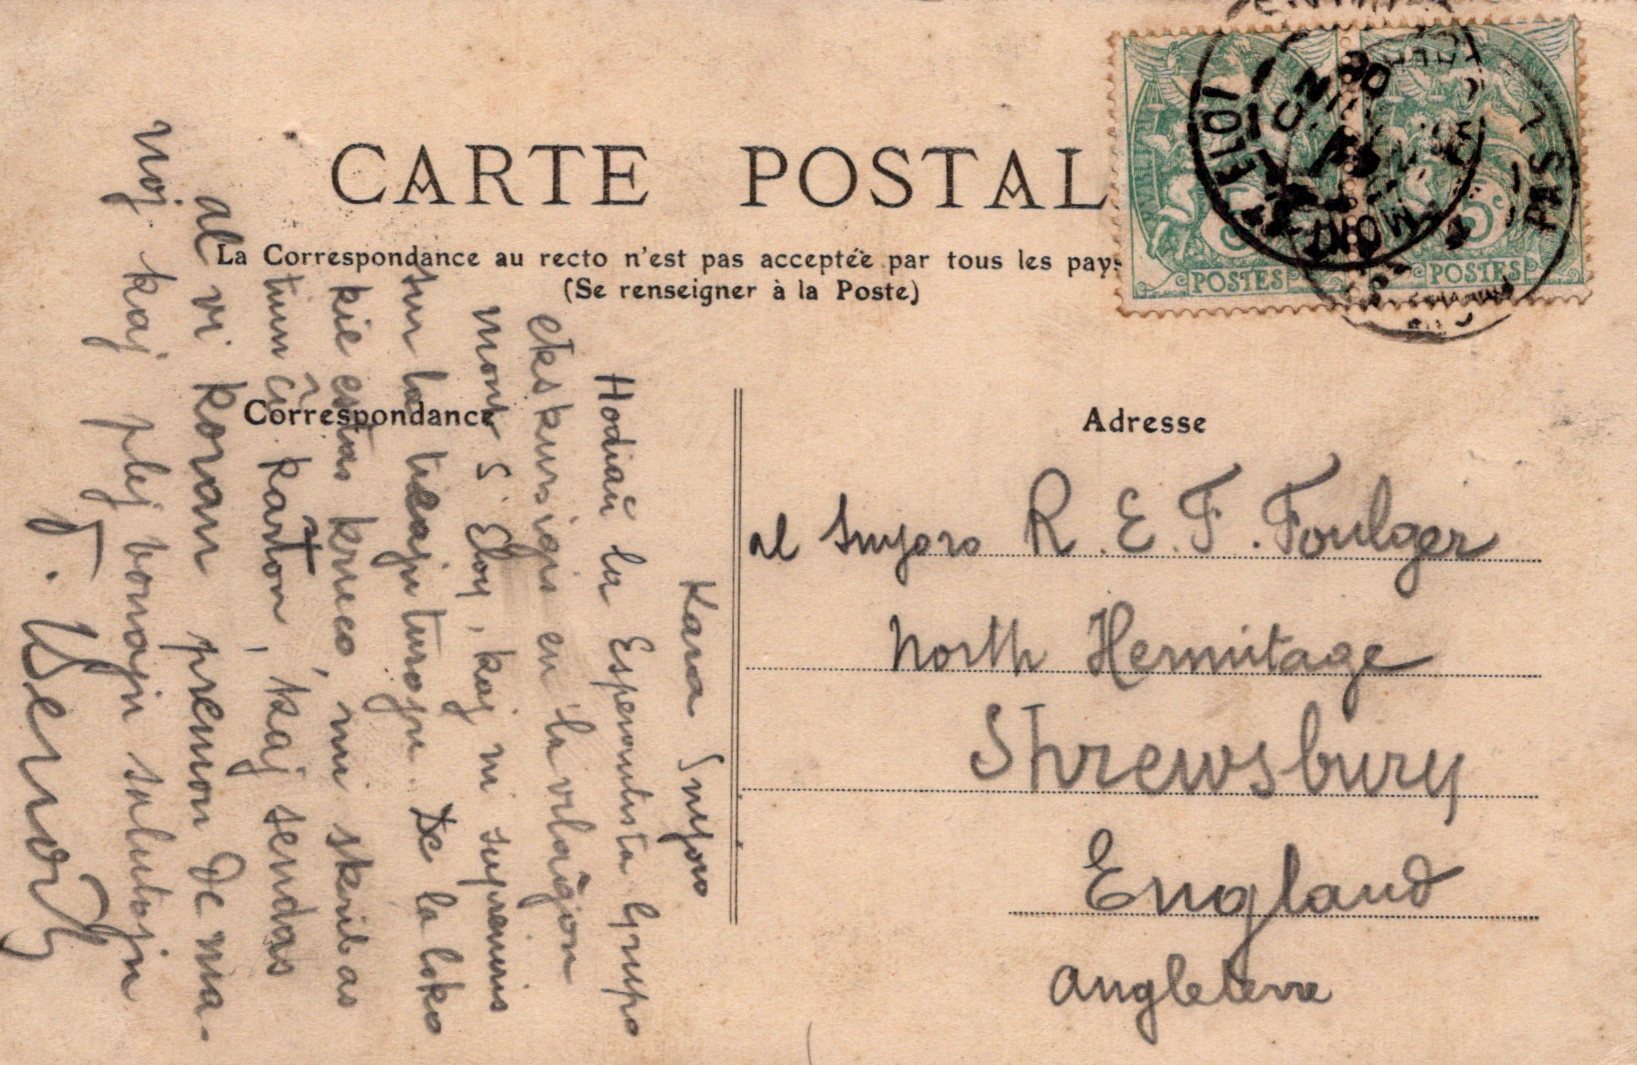 CARTE POSTALE
La Correspondance au recto n'est pas acceptée par tous les pays
(Se renseigner à la Poste)
Correspondance
Kara Sinjoro
Hodiaŭ la Esperantista Grupo
ekskursiĝis en la vilaĝon
Mont S. Eloy, kaj ni supreniris
sur la turojn. De la loko
kie estas kruco, mi skribas
tiun ĉi karton, kaj sendas
al vi koran premon de ma-
noj kaj plej bonajn salutojn
Adresse
al Sinjoro R. E. F. Foulger
North Hermitage
Shrewsbury
England
Angleterre
POSTES
POSTES